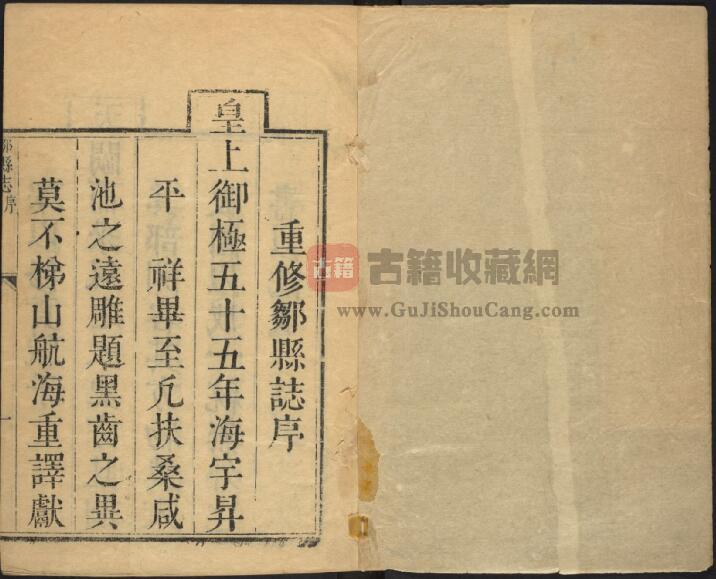 重修鄒縣誌序
皇上御極五十五年海宇昇
平 祥畢至凢扶桑咸
池之遠雕題黑齒之異
莫不梯山航海重譯獻
鄒縣志序
一
古籍
古籍收藏網
www.GuJiShouCang.com